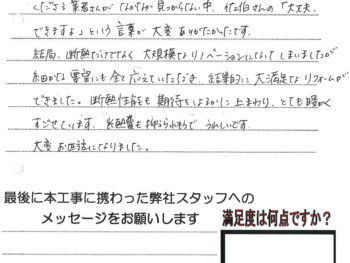 くださる業者さんが なかなか見つからない中、佐伯さんの「大丈夫、
できますよ」という言葉が 大変 ありがたかったです。
結局、断熱だけでなく 大規模なリノベーションになってしまいましたが
細かな要望にも全て応えていただき、結果的に大満足なリフォームが
できました。断熱性能も 期待をはるかに上まわり、とても暖かく
すごせています。光熱費も抑えられそうで うれしいです。
大変 お世話になりました。
最後に本工事に携わった弊社スタッフへの
メッセージをお願いします
満足度は何点ですか？